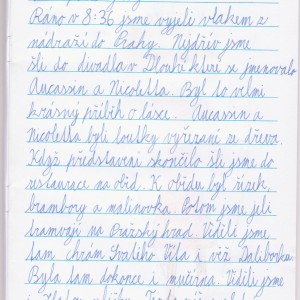 Ráno v 8:36 jsme vyjeli vlakem z
nádraží do Prahy. Nejdřív jsme
šli do divadla v Dlouhé které se jmenovalo
Aucassin a Nicoletta. Byl to velmi
krásný příběh o lásce. Aucassin a
nicoletta byli loutky vyřezané ze dřeva.
Když představení skončilo šli jsme do
restaurace na oběd. K obědu byl řízek,
brambory a malinovka. Potom jsme jeli
tramvají na Pražský hrad. Viděli jsme
tam chrám Svatého Víta i věž Daliborku.
Byla tam dokonce i mučírna. Viděli jsme
i Zlatou uličku.